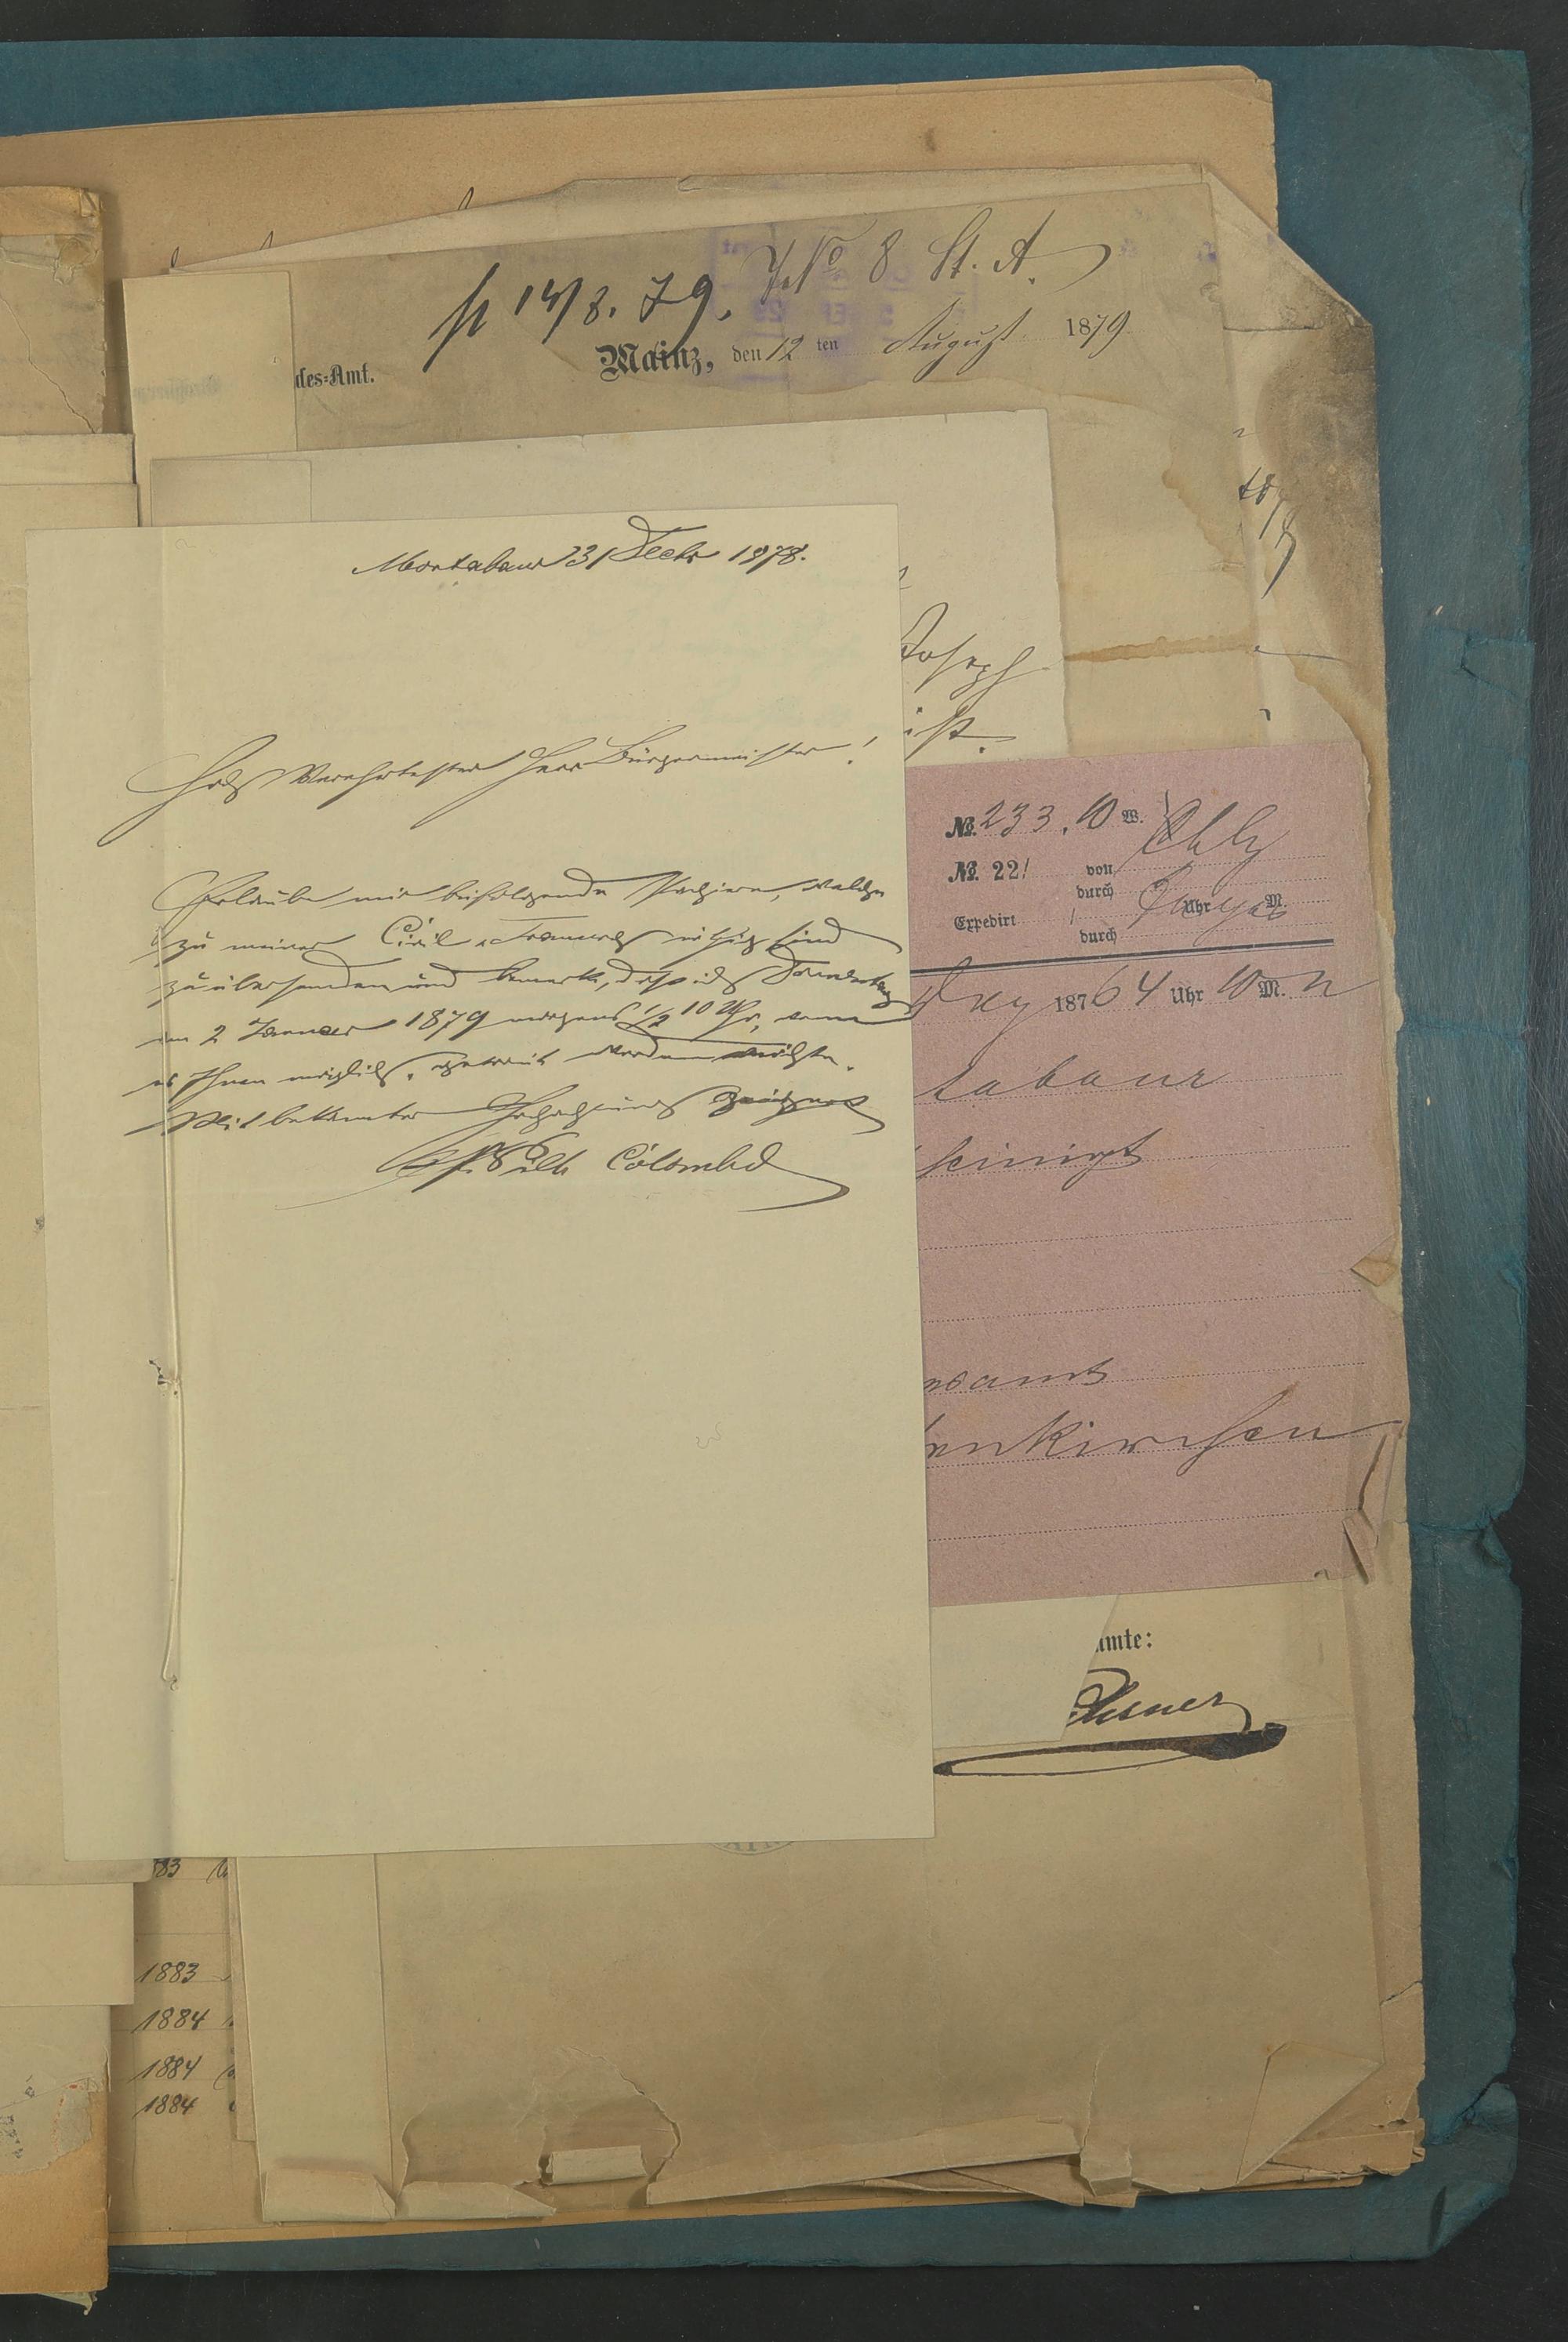 pr 14/8. 79. J. No 8 St. A.
des-Amt.
Mainz, den 12 ten August 1879
Montabaur 31 Decbr 1878.
Hoch Verehrtester Herr Bürgermeister!
Erlaube mir beifolgende Papiere, welche
zu meiner Civil-Trauung nöthig sind
zu übersenden und bemerke, daß ich Donnerstag
den 2 Januar 1879 morgens 1/2 10 Uhr, wenn
es Ihnen möglich, getraut werden möchte.
Mit bekannter Hochachtung zeichnet
Wilh Colombel
Joseph
ist.
No. 233. 10 W.
No. 221 von
durch
Expedirt Uhr M.
durch
187 Uhr 10 M.
tabaur
amt
enkirchen
amte:
83
1883
1884
1884
1884